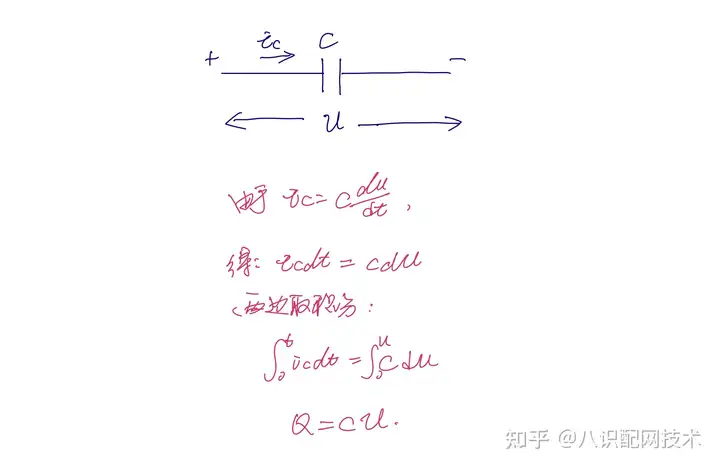 + ic C −
u
由于 ic = C du/dt,
得: icdt = cdu
两边取积分:
∫₀ᵗ icdt = ∫₀ᵘ C du
Q = CU.
知乎 @八识配网技术